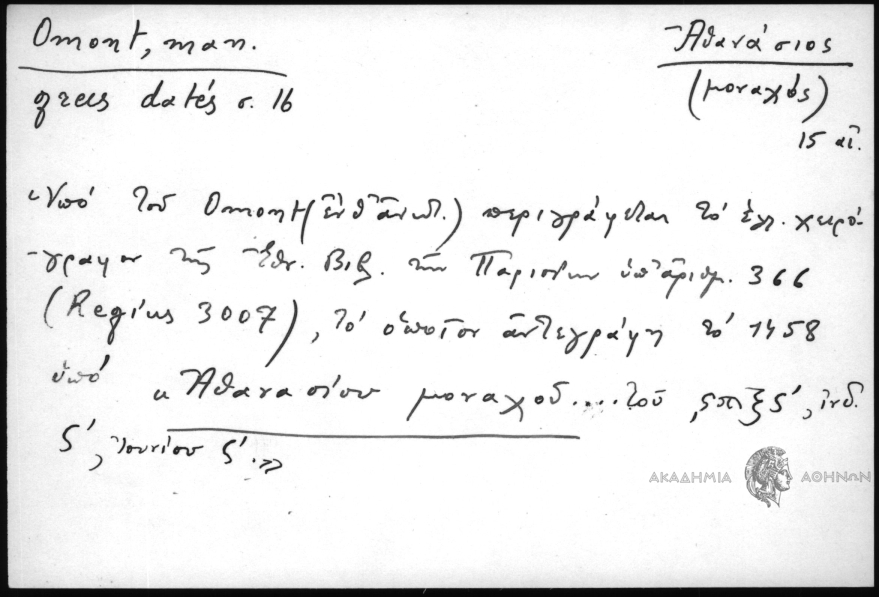 Omont, man.
grecs datés σ. 16
Ἀθανάσιος
(μοναχός)
15 αἰ.
Ὑπό τοῦ Omont (ἔνθ' ἀνωτ.) περιγράφεται τό ἑλ. χειρό-
-γραφον τῆς Ἐθν. Βιβ. τῶν Παρισίων ὑπ' ἀριθμ. 366
(Regius 3007), τό ὁποῖον ἀντεγράφη τό 1458
ὑπό « Ἀθανασίου μοναχοῦ.... τοῦ ͵ϛπξϛ', ἰνδ.
ϛ', Ἰουνίου ϛ'.»
ΑΚΑΔΗΜΙΑ ΑΘΗΝΩΝ